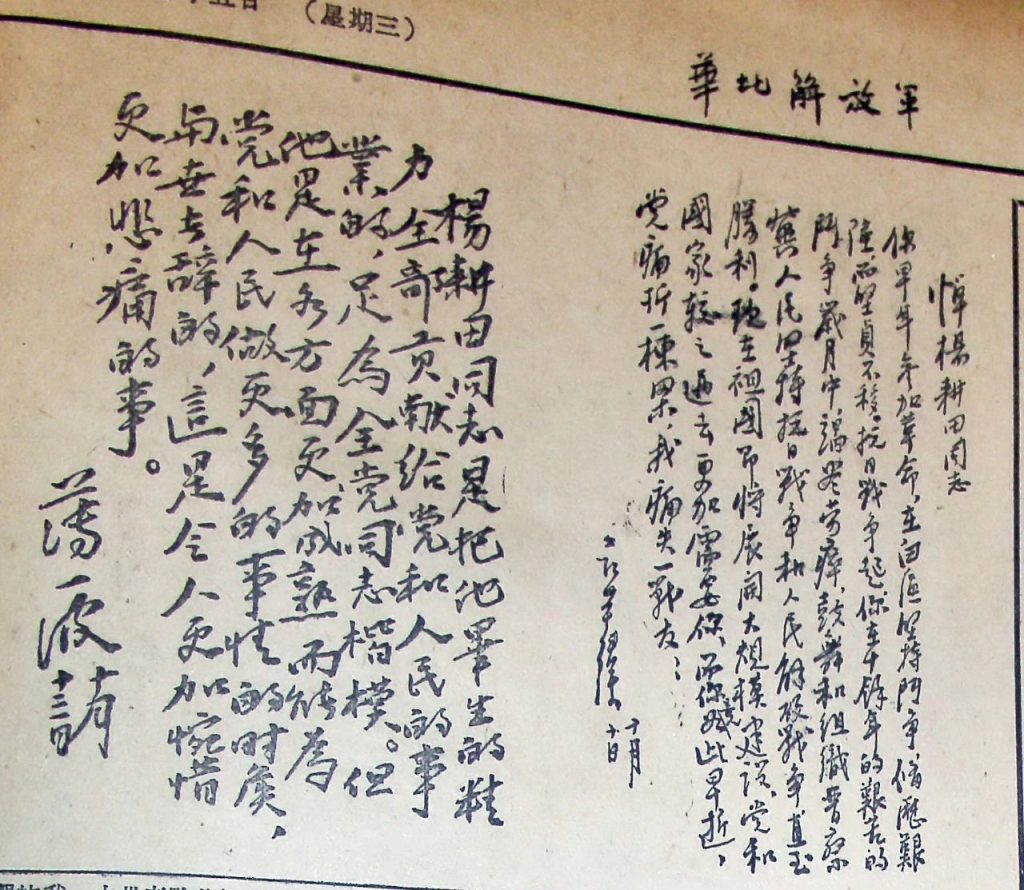 五日 (星期三)
華北解放軍
悼楊耕田同志
你早年參加革命,在白區堅持鬥爭備歷艱
險,而堅貞不移。抗日戰爭起你在十餘年的艱苦的
鬥爭歲月中,竭盡勞瘁,鼓舞和組織晉察
冀人民堅持抗日戰爭和人民解放戰爭直至
勝利。現在祖國即將展開大規模建設,黨和
國家較之過去更加需要你,而你竟此早逝,
党痛折一棟梁,我痛失一戰友!
十一月
十日
楊耕田同志是把他畢生的精
力全部貢獻給党和人民的事
業的,足為全党同志楷模。但
他是在各方面更加成熟而能為
党和人民做更多的事情的時候,
與世長辭的,這是令人更加惋惜
更加悲痛的事。
薄一波
十一月
十三日